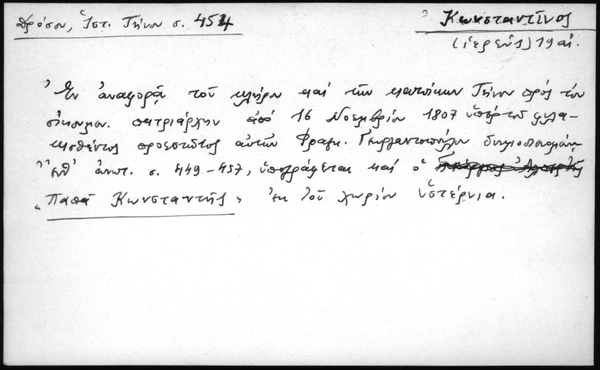 Δρόσου, Ἱστ. Τήνου σ. 454
Κωνσταντῖνος
(ἱερεύς) 19 αἰ.
Ἐν ἀναφορᾷ τοῦ κλήρου καὶ τῶν κατοίκων Τήνου πρὸς τὸν
οἰκουμ. πατριάρχην ἀπὸ 16 Νοεμβρίου 1807 ὑπὲρ τοῦ φυλα-
κισθέντος προεστῶτος αὐτῶν Φραγκ. δημοσιευομένῃ
ἀνωτ. σ. 449-457, ὑπογράφεται καὶ ὁ
"Παπᾶ Κωνσταντῆς" ἐκ τοῦ χωρίου Ὑστέρνια.